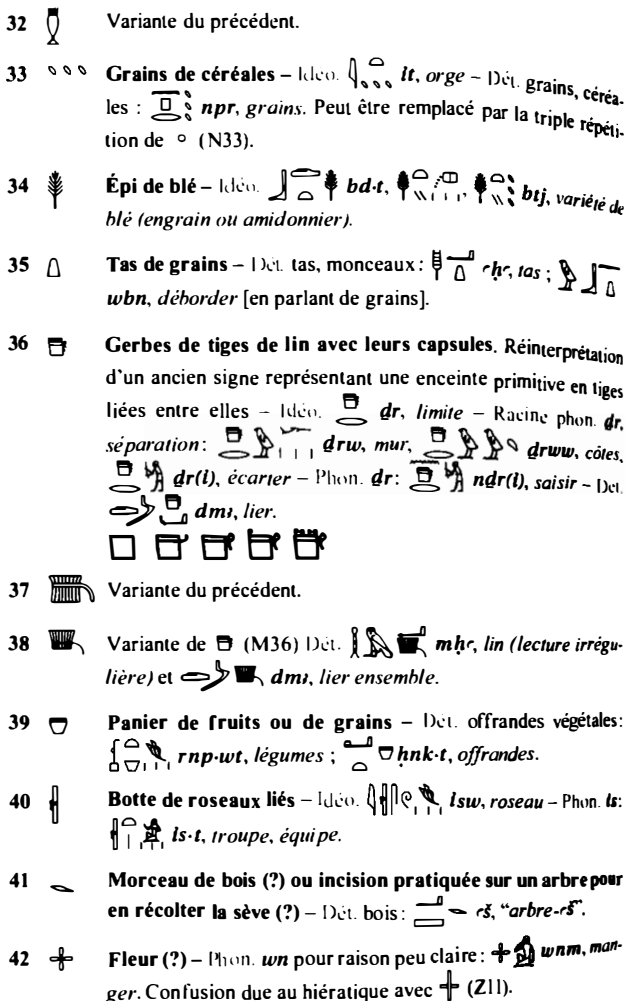 32 Variante du précédent.
33 Grains de céréales – Idéo. ỉt, orge – Dét. grains, céréa-
les : npr, grains. Peut être remplacé par la triple répéti-
tion de ° (N33).
34 Épi de blé – Idéo. bd·t, btj, variété de
blé (engrain ou amidonnier).
35 Tas de grains – Dét. tas, monceaux : ꜥḥꜥ, tas ;
wbn, déborder [en parlant de grains].
36 Gerbes de tiges de lin avec leurs capsules. Réinterprétation
d'un ancien signe représentant une enceinte primitive en tiges
liées entre elles – Idéo. ḏr, limite – Racine phon. ḏr,
séparation : ḏrw, mur, ḏrww, côtes,
dr(ỉ), écarter – Phon. ḏr : nḏr(ỉ), saisir – Dét.
dmꜣ, lier.
37 Variante du précédent.
38 Variante de (M36) Dét. mḥꜥ, lin (lecture irrégu-
lière) et dmꜣ, lier ensemble.
39 Panier de fruits ou de grains – Dét. offrandes végétales :
rnp·wt, légumes ; ḥnk·t, offrandes.
40 Botte de roseaux liés – Idéo. ỉsw, roseau – Phon. ỉs :
ỉs·t, troupe, équipe.
41 Morceau de bois (?) ou incision pratiquée sur un arbre pour
en récolter la sève (?) – Dét. bois : ꜥš, “arbre-ꜥš”.
42 Fleur (?) – Phon. wn pour raison peu claire : wnm, man-
ger. Confusion due au hiératique avec (Z11).